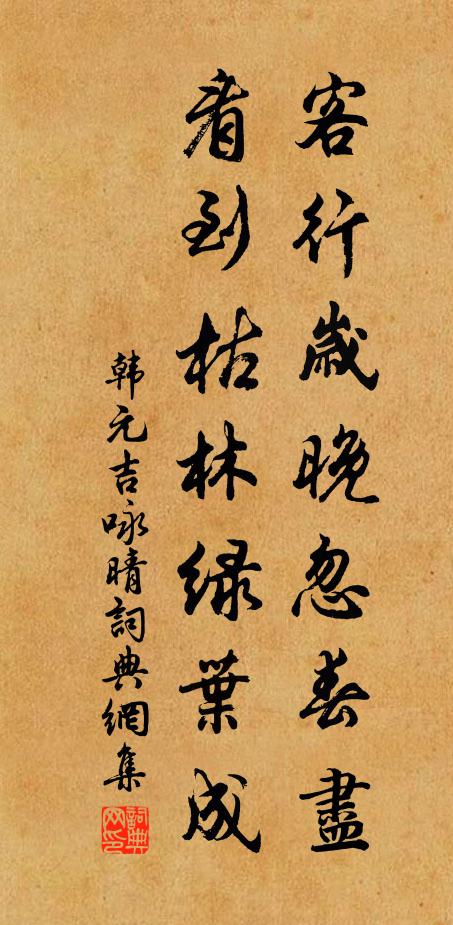 客行歲晚忽春盡
看到枯林绿葉成
韩元吉咏晴詞典網集
詞典网印